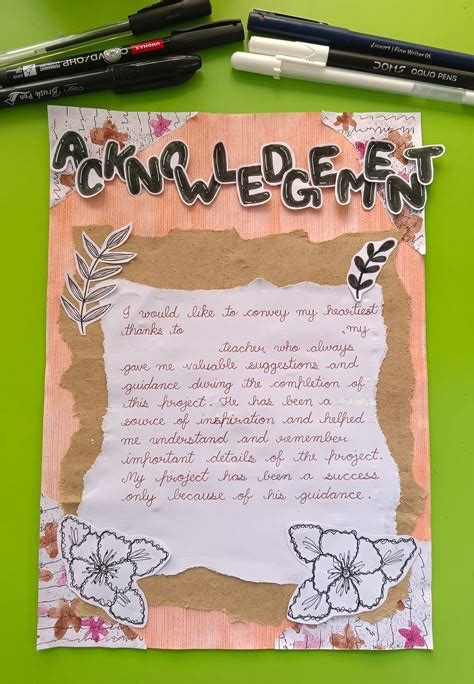 ACKNOWLEDGEMENT
I would like to convey my heartiest
thanks to my
teacher who always
gave me valuable suggestions and
guidance during the completion of
this project. He has been a
source of inspiration and helped
me understand and remember
important details of the project.
My project has been a success
only because of his guidance.
UNOMAX
Brush Pen
DOMS AQUA PENS